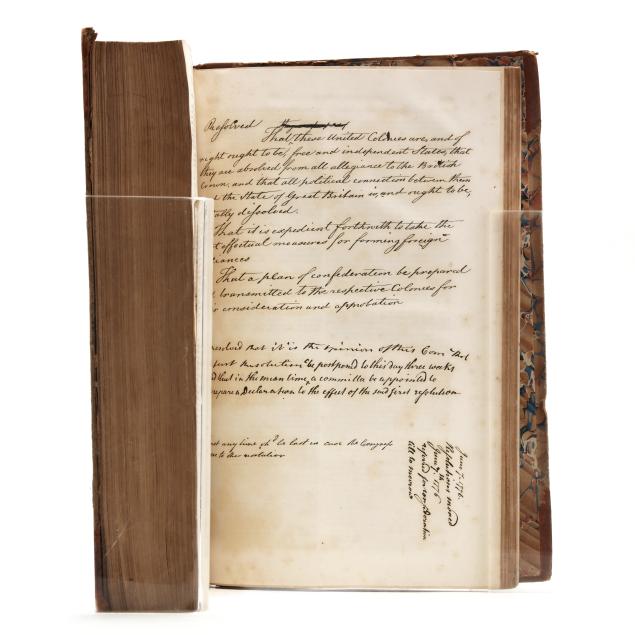 Resolved
That these United Colonies are, and of
right ought to be, free and independent States, that
they are absolved from all allegiance to the British
Crown; and that all political connection between them
the State of Great Britain is, and ought to be,
tally dissolved.
That it is expedient forthwith to take the
t effectual measures for forming foreign
iances
That a plan of confederation be prepared
transmitted to the respective Colonies for
r consideration and approbation
resolved that it is the opinion of this Com that
first Resolution be postponed to this day three weeks
d that in the mean time, a committee be appointed to
repare a Declaration to the effect of the said first resolution
not any time sh.d be lost in case the Congress
ee to this resolution
June 7. 1776.
Resolutions moved
June 7.th 1776
referred for consideration
till to morrow